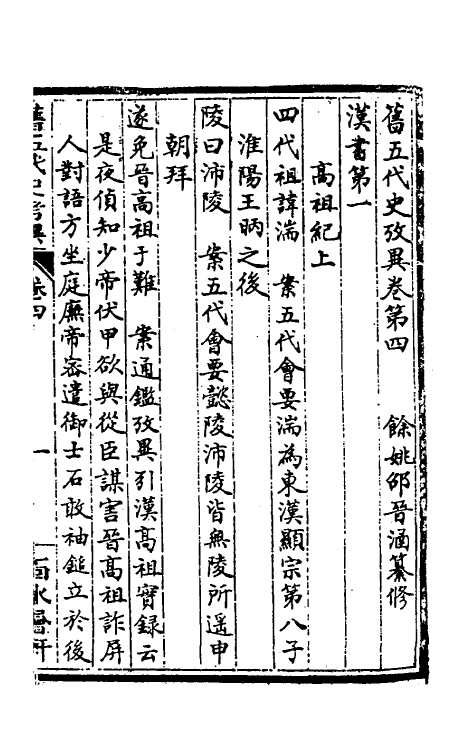 舊五代史攷異卷第四　餘姚邵晉涵纂修
漢書第一
高祖紀上
四代祖諱湍　案五代會要湍為東漢顯宗第八子
淮陽王昞之後
陵曰沛陵　案五代會要懿陵沛陵皆無陵所遥申
朝拜
遂免晉高祖于難　案通鑑攷異引漢高祖實録云
是夜偵知少帝伏甲欲與從臣謀害晉高祖詐屏
人對語方坐庭廡帝密遣御士石敢袖鎚立於後
舊五代史攷異　卷四　一